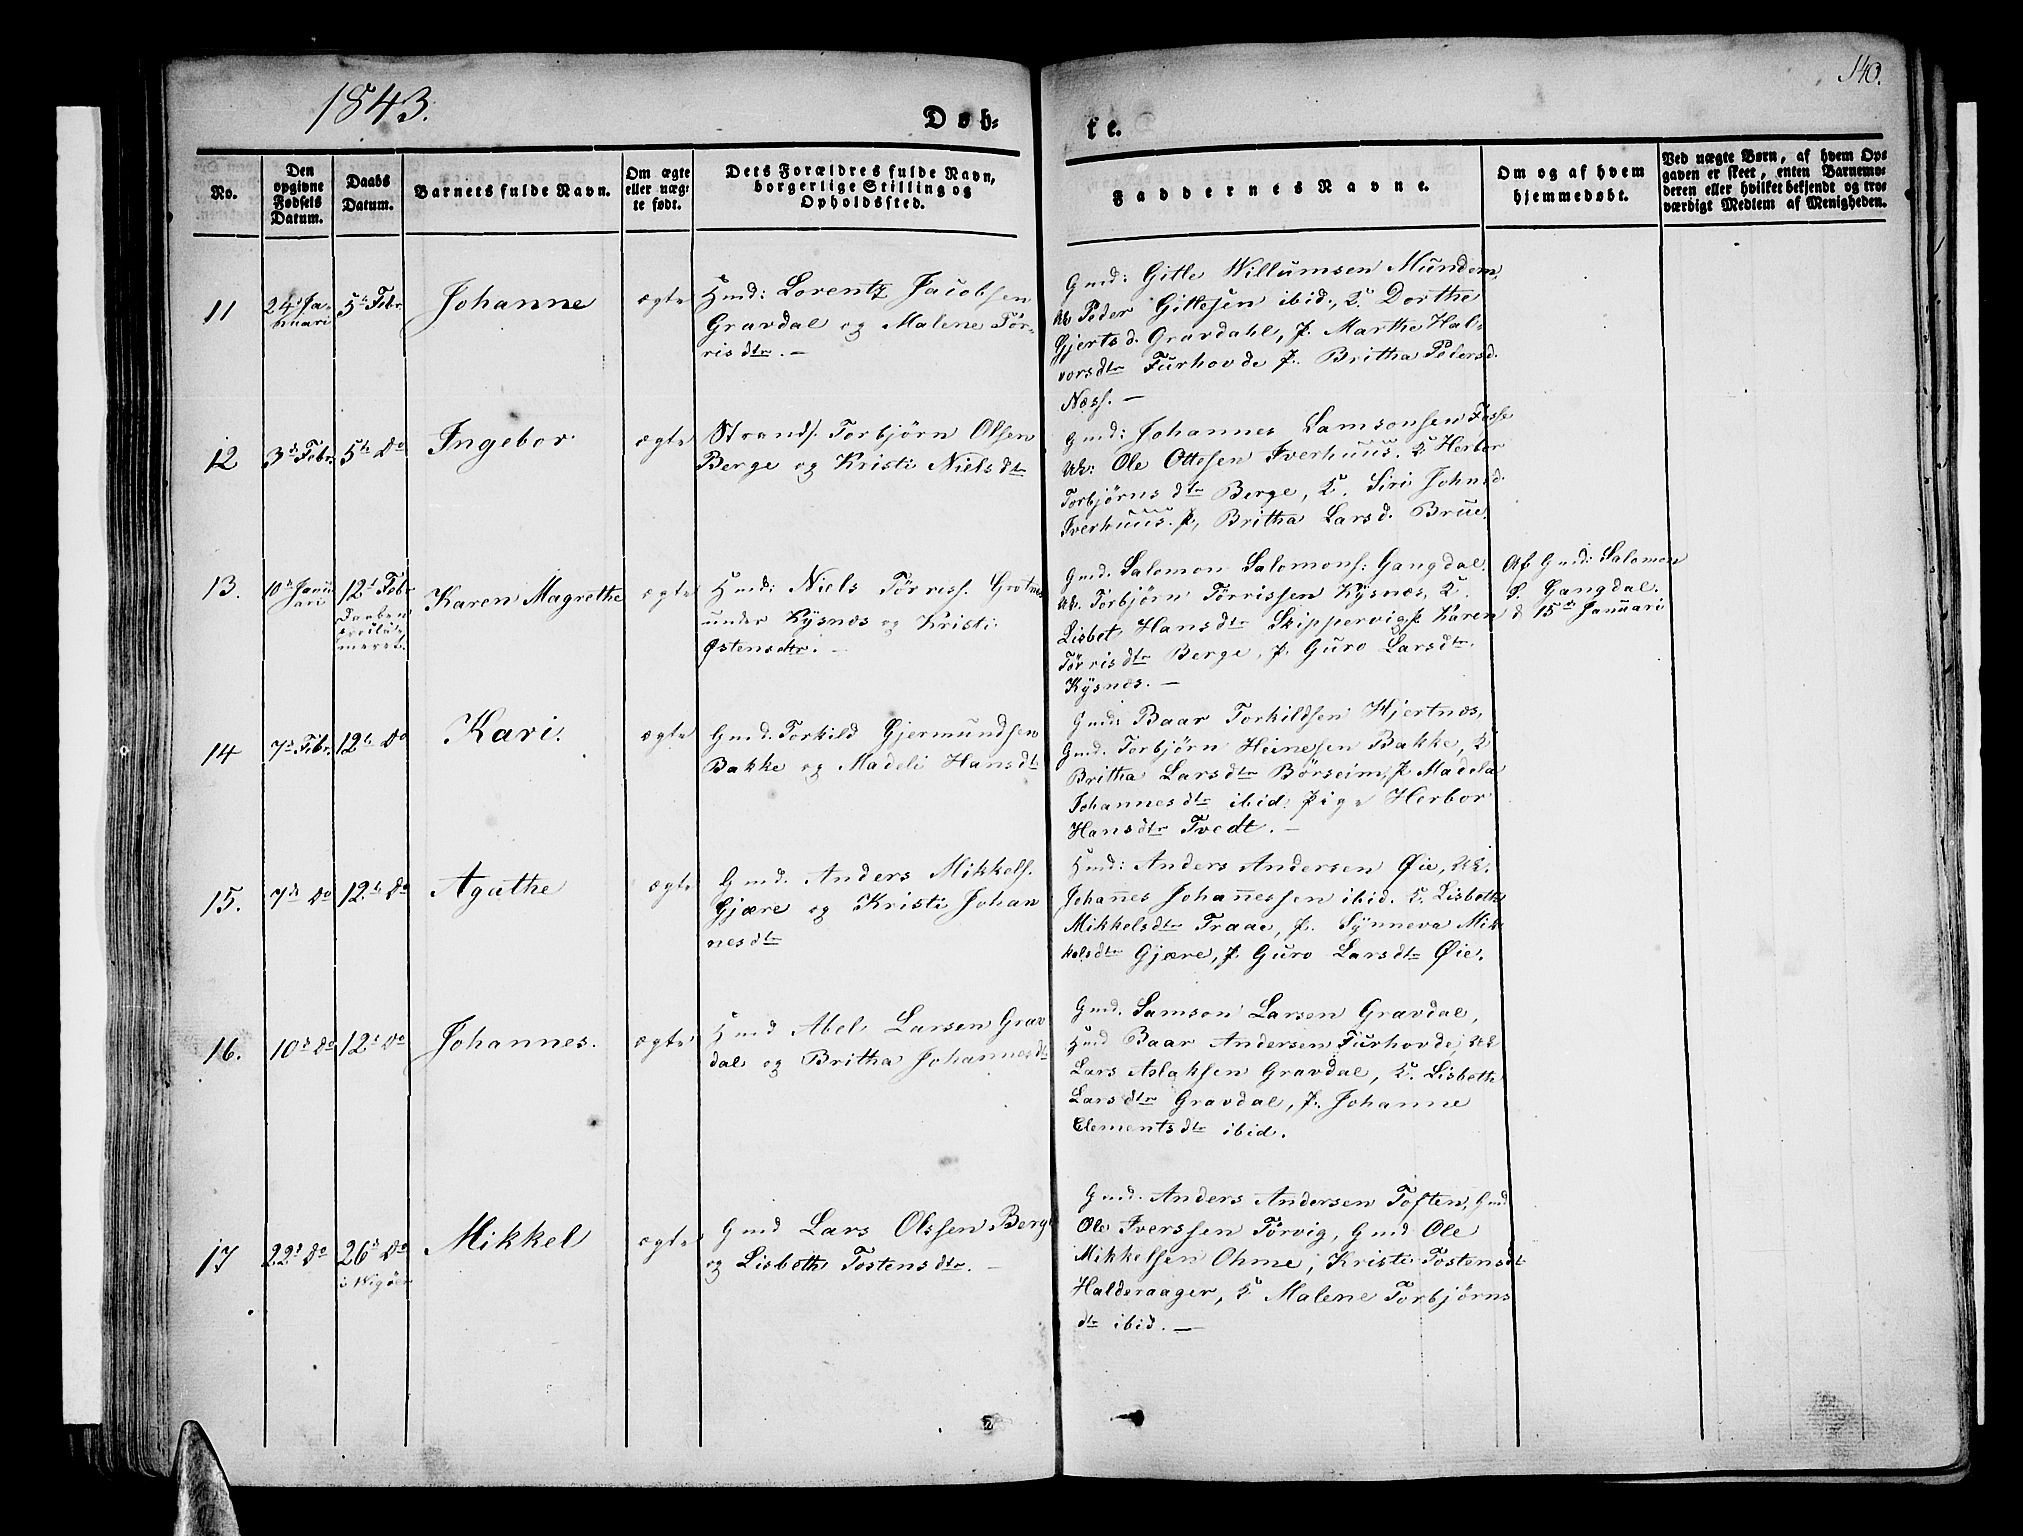 1843.
140.
Døb-
te.
No.
Den opgivne Fødsels Datum.
Daabs Datum.
Barnets fulde Navn.
Om ægte eller uægte født.
Dets Forældres fulde Navn, borgerlige Stilling og Opholdssted.
Faddernes Navne.
Om og af hvem hjemmedøbt.
Ved uægte Børn, af hvem Opgaven er skeet, enten Barnemoderen eller hvilket bekjendt og troværdigt Medlem af Menigheden.
11
24 Ja-
nuari
5te Febr
Johanne
ægte
Hmd: Lorentz Jacobsen
Gravdal og Malene Tør-
risdtr. —
Gmd: Gitle Willumsen Mundem,
Uk Peder Gittesen ibid., K. Dorthe
Gjertsd. Gravdahl, P. Marthe Hal-
vorsdtr Furhovde P. Britha Pedersd.
Næss. —
12
3de Febr.
5te Do
Ingebor
ægte
Strands. Torbjörn Olsen
Berge og Kristi Nielsdtr
Gmd: Johannes Samsonsen Fosse
Uk: Ole Ottesen Iverhuus. K Herbor
Torbjørnsdtr Berge, K. Siri Johnsd.
Iverhuus. P. Britha Larsd. Brue.
13.
10de Janu
ari
12te Febr
Daaben
meret.
Karen Magrethe
ægte
Hmd: Niels Tørriss. Grotnes
under Kysnæs og Kristi
Østensdtr. —
Gmd. Salomon Salomons: Gangdal
Uk. Torbjørn Tørrissen Kysnæs, K.
Lisbet Hansdtr Skippervig P. Karen
Tørrisdtr Berge, P. Guro Larsdtr.
Kysnæs. —
Af Gmd: Salomon
S. Gangdal.
d 15de Januari
14
7de Febr.
12te Do
Kari.
ægte
Gmd. Torkild Gjermundsen
Bakke og Madeli Hansdtr
Gmd: Baar Torkildsen Hjertnæs,
Gmd. Torbjørn Heinesen Bakke, K
Britha Larsdtr Börseim, P. Madela
Johannesdtr ibid. Pige Herbor
Hansdtr Tvedt. —
15.
7de Do
12te Do
Agathe
ægte
Gmd. Anders Mikkels.
Gjære og Kristi Johan
nesdtr
Hmd: Anders Andersen Øie, Uk:
Johannes Johannessen ibid. K. Lisbeth
Mikkelsdtr Traae, P. Synneva Mik
kelsdtr Gjære, P Guro Larsdtr Øie.
16.
10de Do
12te Do
Johannes.
ægte
Hmd Abel Larsen Grav
dal og Britha Johannesdtr
Gmd. Samson Larsen Gravdal,
Hmd Baar Andersen Furhovde, Uk
Lars Aslaksen Gravdal, K. Lisbeth
Larsdtr Gravdal, P. Johanne
Clementsdtr ibid.
17
22de Do
26de Do
i Wigöer
Mikkel
ægte
Gmd Lars Olssen Berge
og Lisbeth Tostensdtr. —
Gmd. Anders Andersen Toften, Gmd
Ole Iverssen Törvig, Gmd Ole
Mikkelsen Ohme, Kristi Tostensdt
Halderaager, K Malene Torbjørns
dtr ibid. —